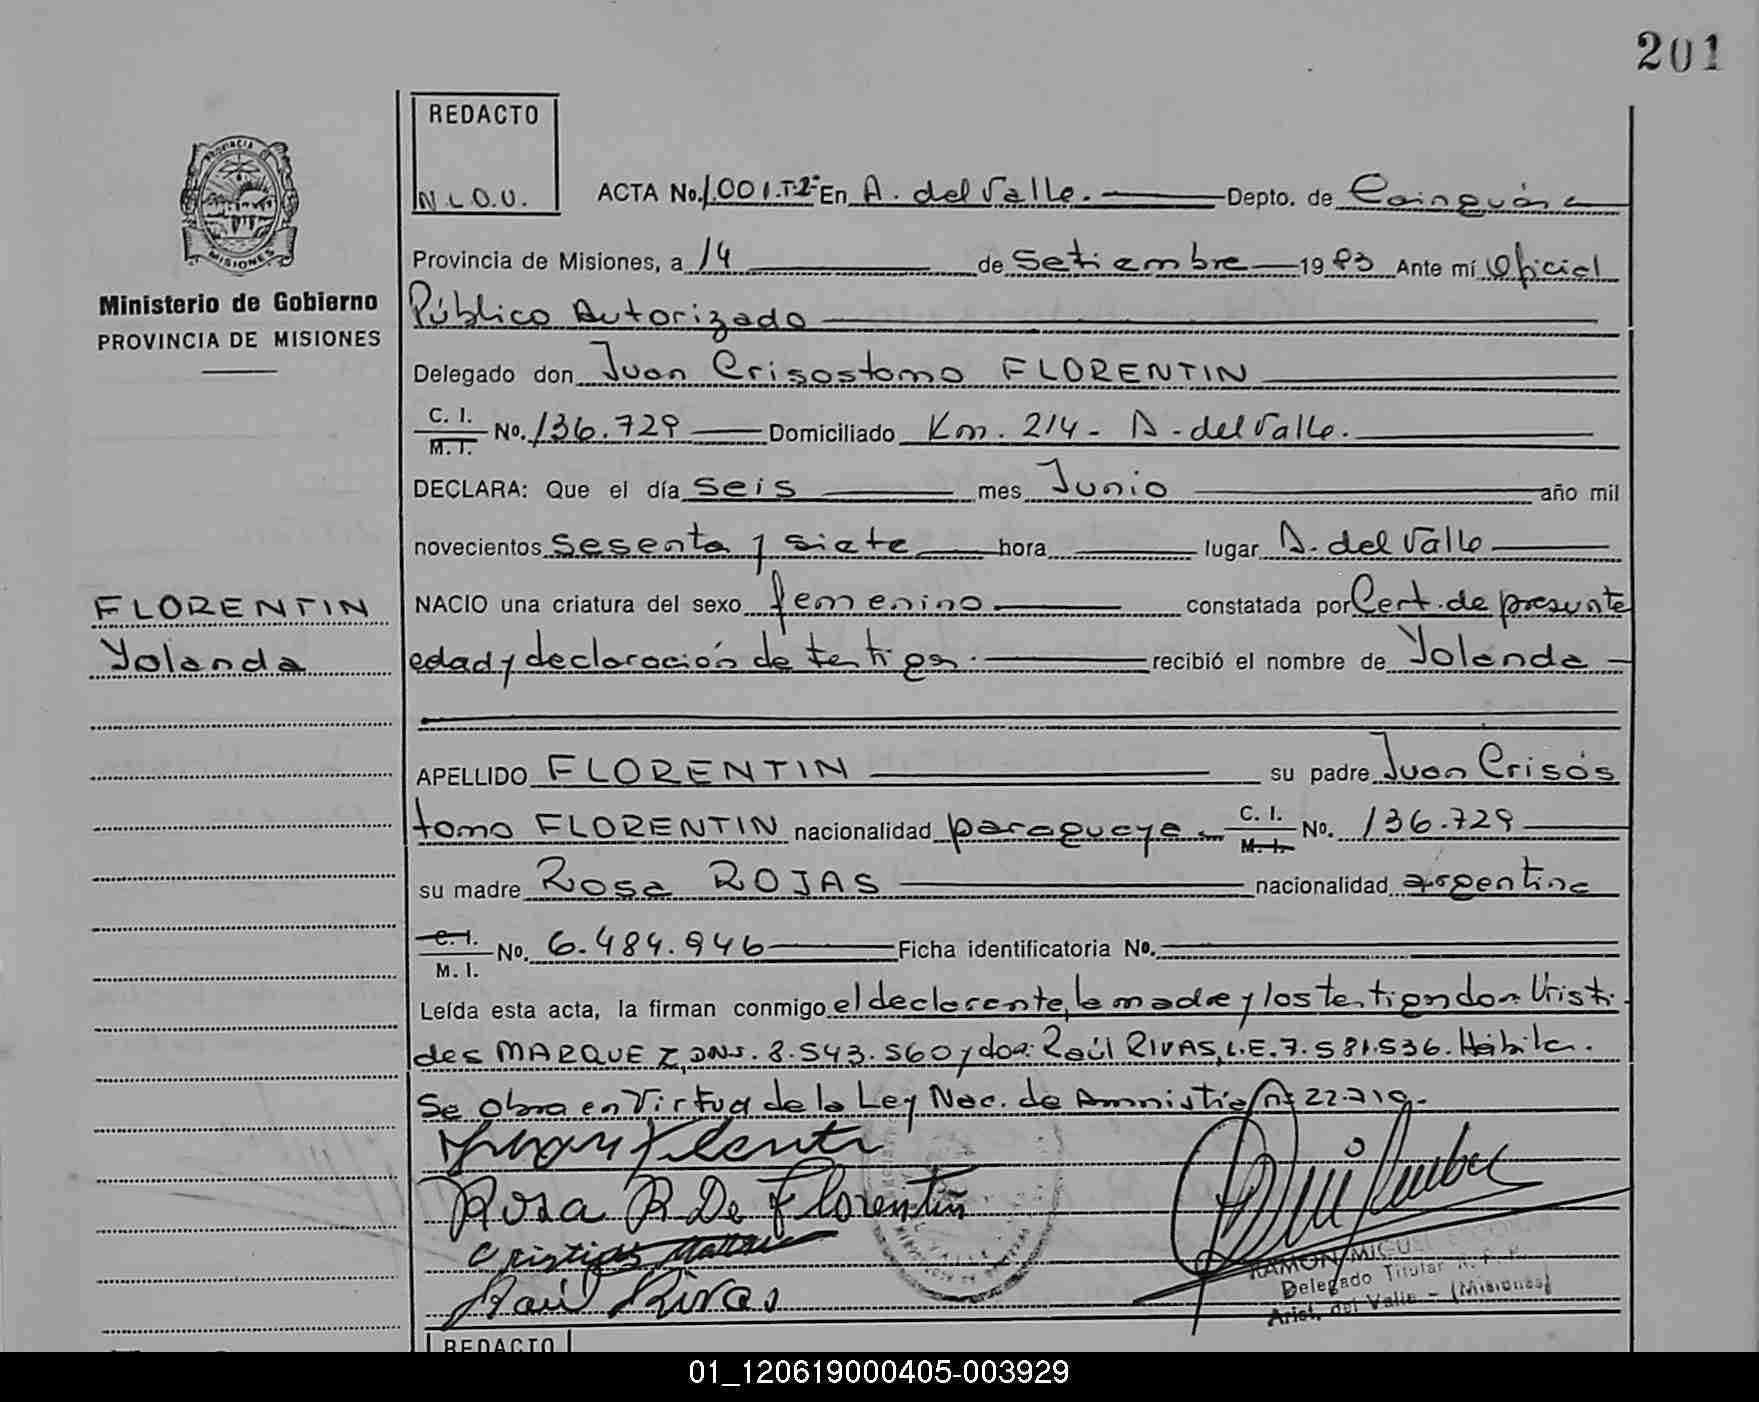 201
REDACTO
N.L.O.U.
PROVINCIA
MISIONES
Ministerio de Gobierno
PROVINCIA DE MISIONES
FLORENTIN
Yolanda
ACTA No. 1.001.T-2º En A. del Valle. Depto. de Cainguás
Provincia de Misiones, a 14 de Setiembre 1983 Ante mí Oficial
Público Autorizado
Delegado don Juan Crisostomo FLORENTIN
C. I. / M. I. No. 136.729 Domiciliado Km. 214 - A. del Valle.
DECLARA: Que el día seis mes Junio año mil
novecientos sesenta y siete hora lugar A. del Valle
NACIO una criatura del sexo femenino constatada por Cert. de presunta
edad y declaración de testigos. recibió el nombre de Yolanda
APELLIDO FLORENTIN su padre Juan Crisós
tomo FLORENTIN nacionalidad paraguaya C. I. / M. I. No. 136.729
su madre Rosa ROJAS nacionalidad argentina
C. I. / M. I. No. 6.484.946 Ficha identificatoria No.
Leída esta acta, la firman conmigo el declarante, la madre y los testigos don Cristi
des MARQUEZ, DNI. 8.543.560 y don: Raúl RIVAS, L.E. 7.581.536. Hábiles.
Se obra en Virtud de la Ley Nac. de Amnistía nº 22.719.
Rosa R De Florentin
Raúl Rivas
RAMON MIGUEL
Delegado Titular R. P. P.
Arist. del Valle - (Misiones)
REDACTO
01_120619000405-003929